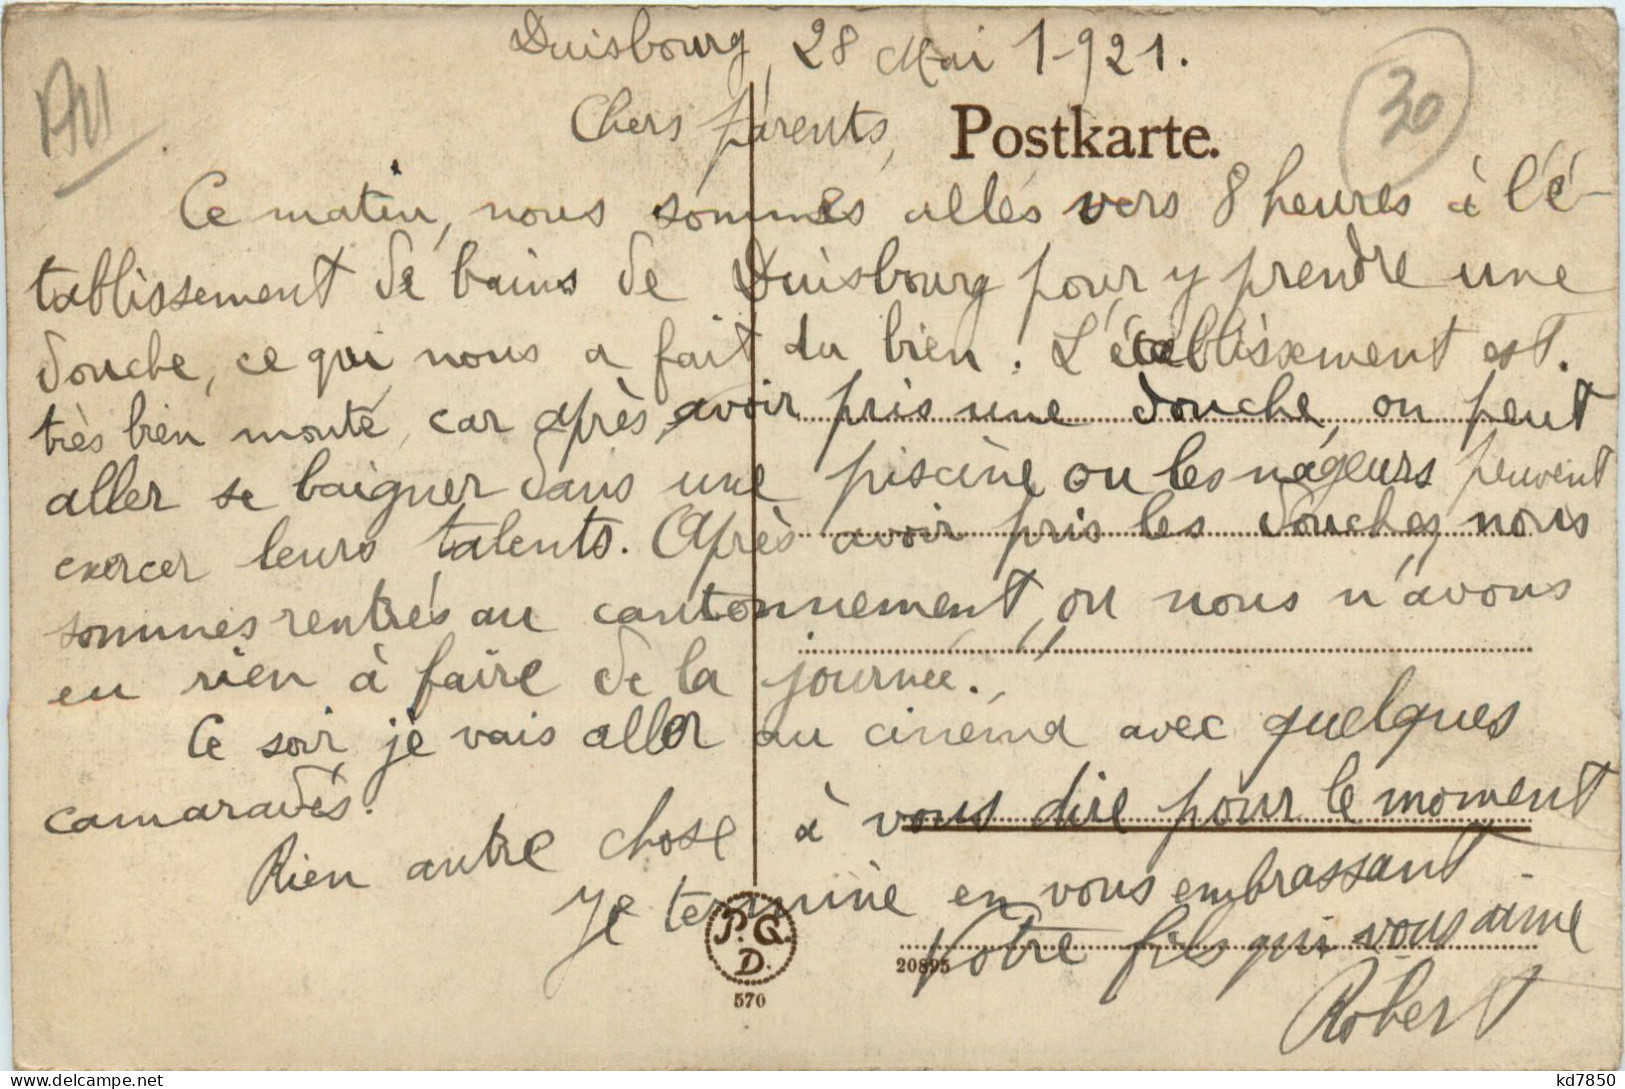 Duisbourg 28 Mai 1921.
AU
30
Chers parents,
Postkarte.
Ce matin, nous sommes allés vers 8 heures à l'é-
tablissement de bains de Duisbourg pour y prendre une
douche, ce qui nous a fait du bien. L'établissement est.
très bien monté, car après avoir pris une douche, on peut
aller se baigner dans une piscine ou les nageurs peuvent
exercer leurs talents. Après avoir pris les douches nous
sommes rentrés au cantonnement, ou nous n'avons
eu rien à faire de la journée.
Ce soir, je vais aller au cinéma avec quelques
camarades.
Rien autre chose à vous dire pour le moment
Je termine en vous embrassant.
Votre fils qui vous aime
Robert
P.G.
D.
570
20895
kd7850